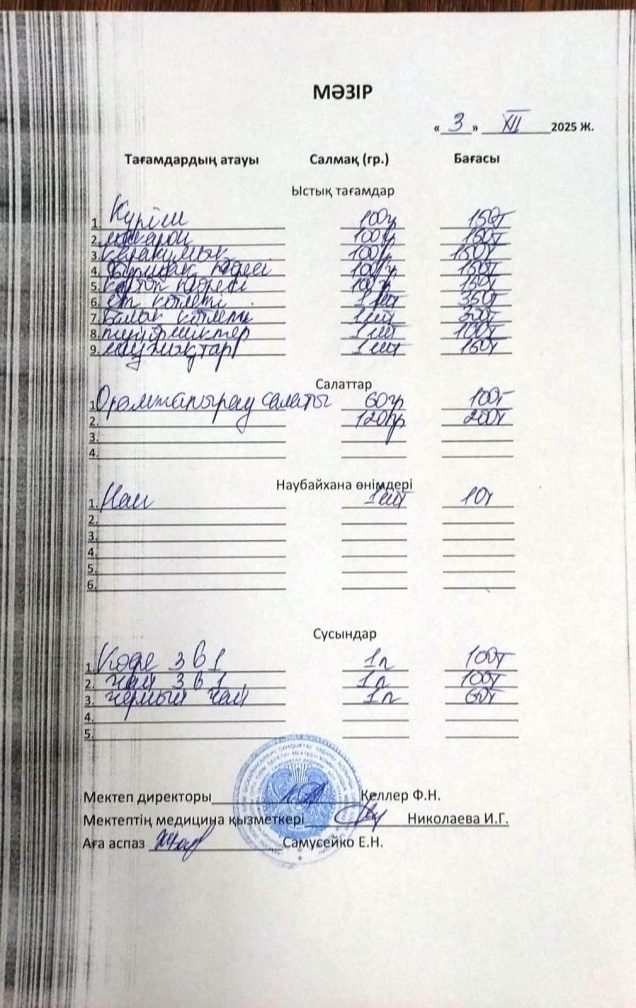 МӘЗІР
« 3 » XII 2025 Ж.
Тағамдардың атауы Салмақ (гр.) Бағасы
Ыстық тағамдар
1. Күріш 100гр 150т
2. макарон 100гр 150т
3. қарақұмық 100гр 150т
4. Бұршақ пюресі 100гр 150т
5. картоп пюресі 100гр 150т
6. ет котлеті 1шт 350т
7. Балық котлеті 1шт 300т
8. 1шт 100т
9. 1шт 150т
Салаттар
1. Орамжапырақ салаты 60гр 100т
2. 120гр 200т
3.
4.
Наубайхана өнімдері
1. Нан 1шт 10т
2.
3.
4.
5.
6.
Сусындар
1. Кофе 3 в 1 1п 100т
2. чай 3 в 1 1п 100т
3. черный чай 1п 60т
4.
5.
Мектеп директоры Келлер Ф.Н.
Мектептің медицина қызметкері Николаева И.Г.
Аға аспаз Самусейко Е.Н.